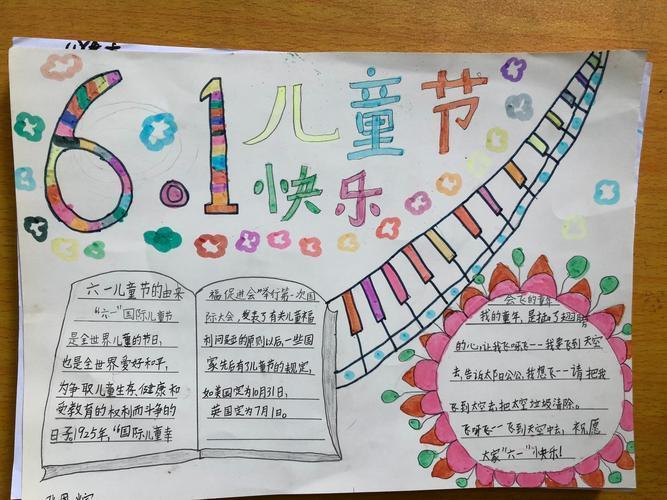 6.1儿童节
快乐
六一儿童节的由来
“六一”国际儿童节
是全世界儿童的节日,
也是全世界爱好和平,
为争取儿童生存、健康和
受教育的权利而斗争的
日子,1925年,“国际儿童幸
福促进会”举行第一次国
际大会,发表了有关儿童福
利问题的原则以后,一些国
家先后有了儿童节的规定,
如美国定为10月31日,
英国定为7月1日。
会飞的童年
我的童年,是插了翅膀
的心,让我飞呀飞--我要飞到天空
去,告诉太阳公公,我想飞--请把我
飞到太空去,把太空垃圾清除。
飞呀飞--飞到天空中去,祝愿
大家“六一”快乐!